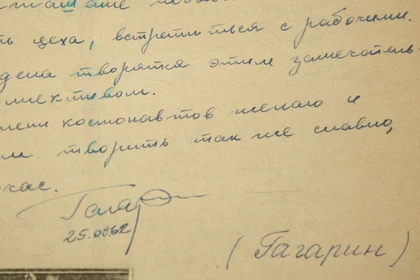 ть цеха, встретиться с рабочими.
дена творятся этим замечатель-
лективом.
мени космонавтов желаю и
творить так же славно,
час.
Гагар
25.0862
(Гагарин)